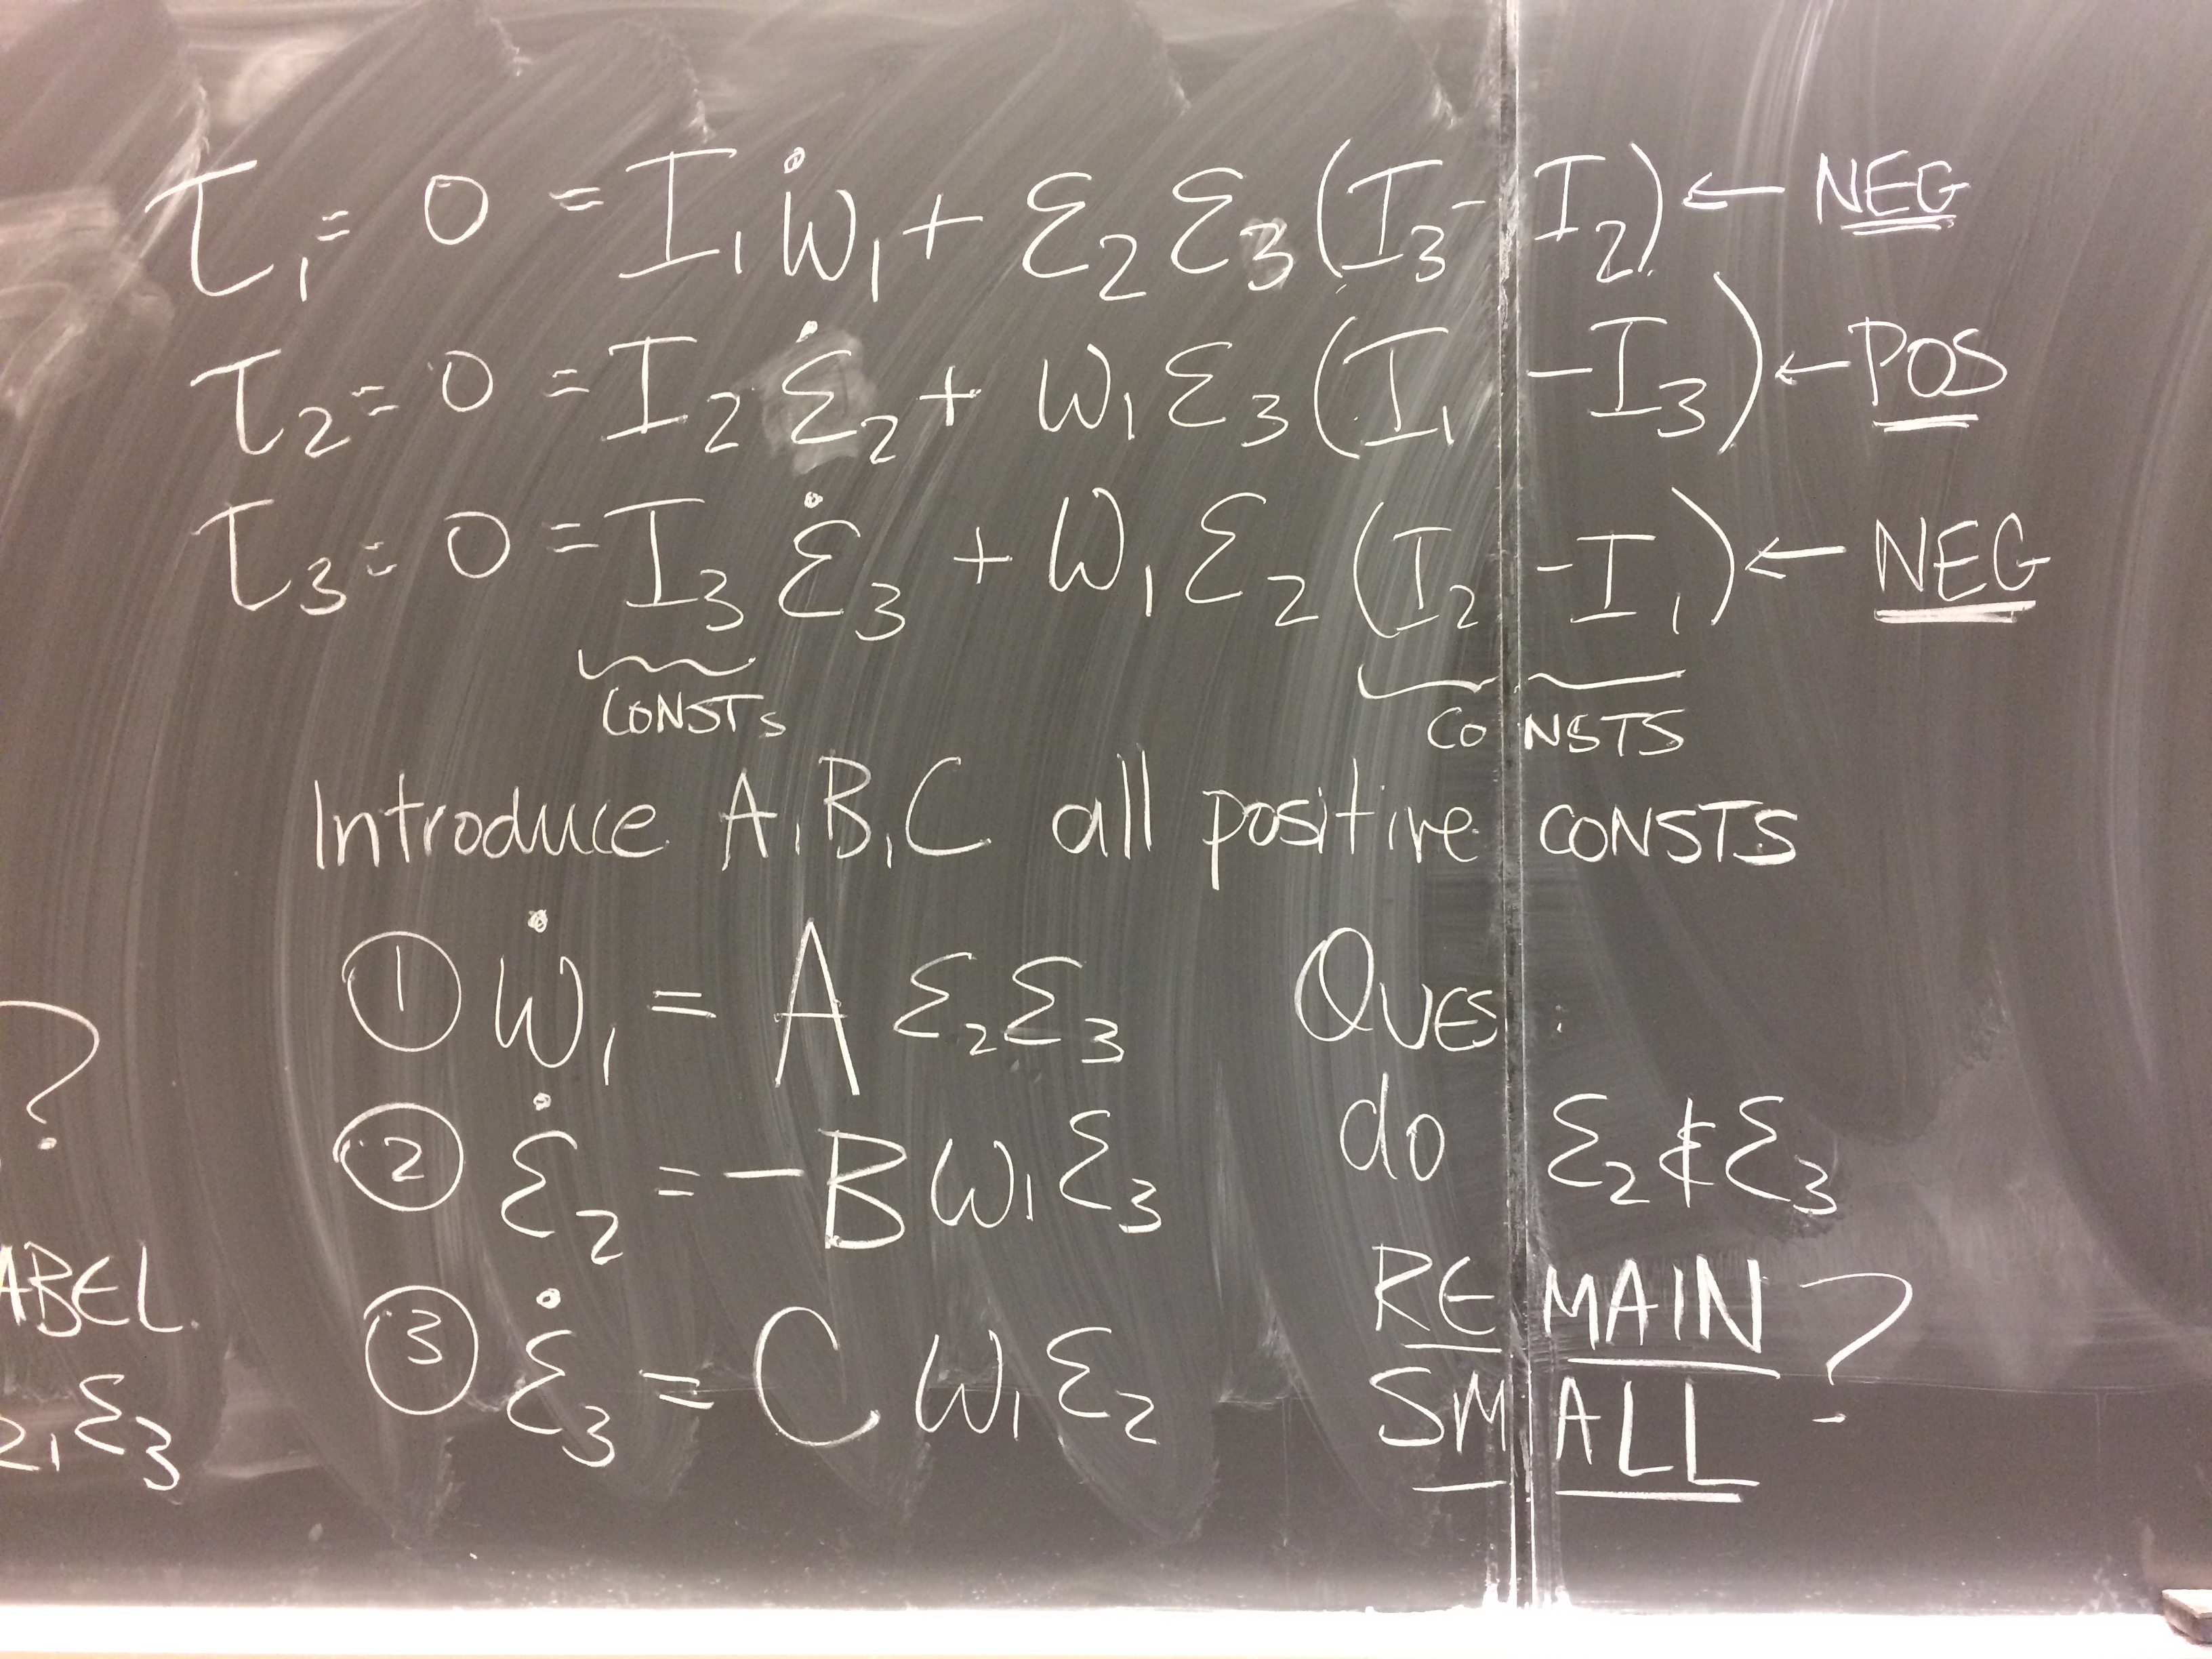 τ₁ = 0 = I₁ ω̇₁ + ε₂ ε₃ (I₃ - I₂) ← NEG
τ₂ = 0 = I₂ ε̇₂ + ω₁ ε₃ (I₁ - I₃) ← POS
τ₃ = 0 = I₃ ε̇₃ + ω₁ ε₂ (I₂ - I₁) ← NEG
CONSTs CONSTS
Introduce A, B, C all positive CONSTS
① ω̇₁ = A ε₂ ε₃
② ε̇₂ = -B ω₁ ε₃
③ ε̇₃ = C ω₁ ε₂
QUES:
do ε₂ & ε₃
REMAIN
SMALL ?
?
ABEL
₂, ε₃